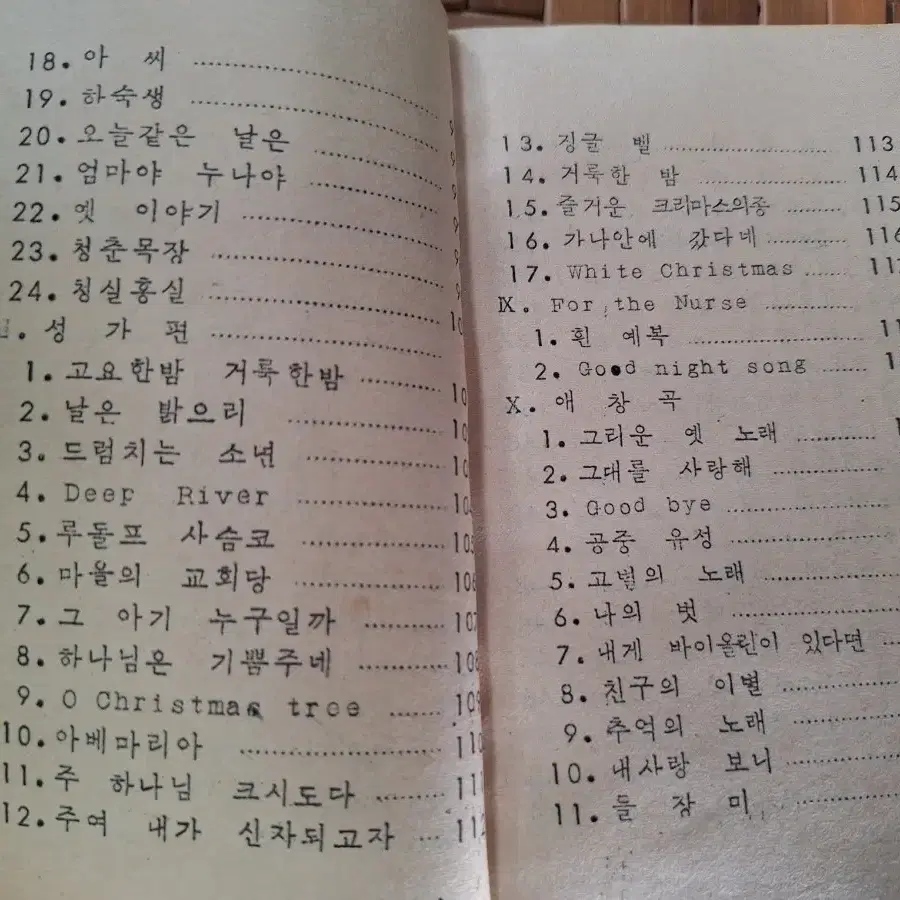 18. 아 씨
19. 하숙생
20. 오늘같은 날은
21. 엄마야 누나야
22. 옛 이야기
23. 청춘목장
24. 청실홍실
. 성 가 편
1. 고요한밤 거룩한밤
2. 날은 밝으리
3. 드럼치는 소년
4. Deep River
5. 루돌프 사슴코 105
6. 마을의 교회당 106
7. 그 아기 누구일까 107
8. 하나님은 기쁨주네 108
9. O Christmas tree 109
10. 아베마리아 110
11. 주 하나님 크시도다
12. 주여 내가 신자되고자 112
13. 징글 벨 113
14. 거룩한 밤 114
15. 즐거운 크리마스의종 115
16. 가나안에 갔다네 116
17. White Christmas
Ⅸ. For the Nurse
1. 흰 예복
2. Good night song
Ⅹ. 애 창 곡
1. 그리운 옛 노래
2. 그대를 사랑해
3. Good bye
4. 공중 유성
5. 고별의 노래
6. 나의 벗
7. 내게 바이올린이 있다면
8. 친구의 이별
9. 추억의 노래
10. 내사랑 보니
11. 들 장 미